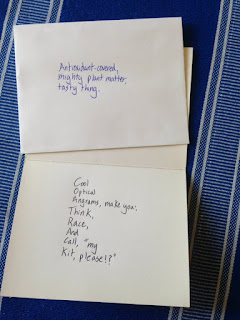 Antioxidant-covered,
mighty plant matter,
tasty thang.
Cool
Optical
Angrams, make you:
Think,
Race,
And
Call, "my
Kit, please!?"